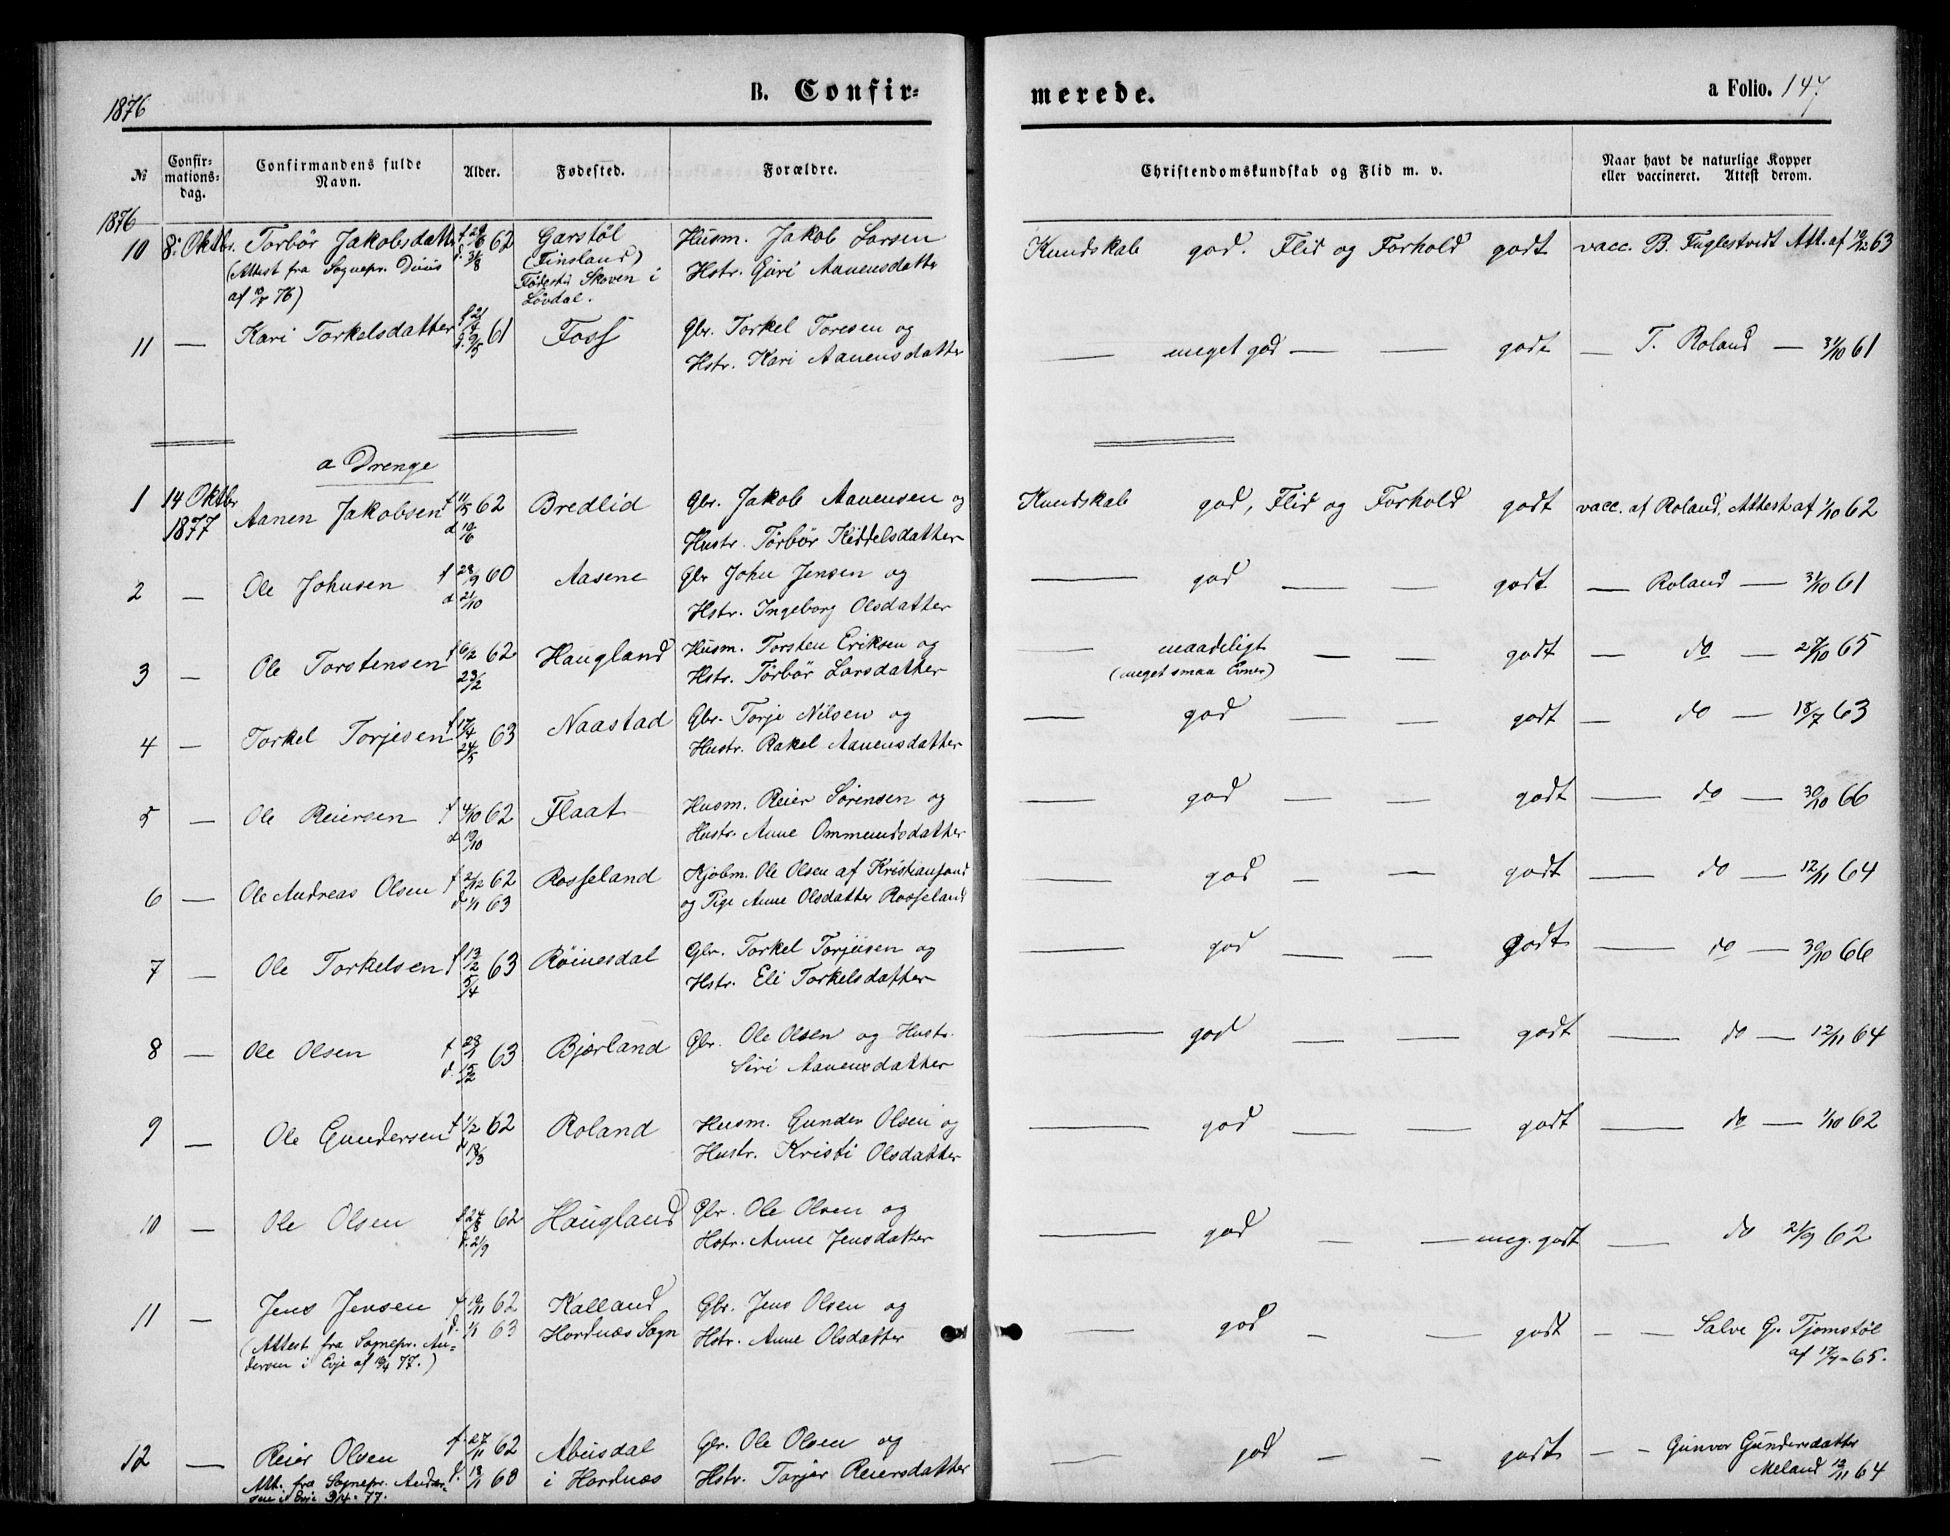 1876 B. Confirmerede. a Folio. 147
№ Confirmationsdag. Confirmandens fulde Navn. Alder. Fødested. Forældre. Christendomskundskab og Flid m. v. Naar havt de naturlige Kopper eller vaccineret. Attest derom.
1876
10 8. Oktbr. Torbør Jakobsdatter 62 Garstøl Husm. Jakob Larsen Kundskab god. Flid og Forhold godt vacc. B. Fuglestvedt Att. af 63
(Attest fra Sognepr. (Finsland) Hstr. Guri Aanensdatter
af 76) Fødested Skoven i
Løvdal.
11 — Kari Torkelsdatter 61 Foss Gbr. Torkel Toresen og — meget god — — godt — T. Roland — 31/10 61
Hstr. Kari Aanensdatter
a Drenge
1 14 Oktbr 1877 Aanen Jakobsen f 11/5 62 Bredlid Gbr. Jakob Aanensen og Kundskab god, Flid og Forhold godt vacc. af Roland, Attest af 1/10 62
Hustr. Torbør Kiddelsdatter
2 — Ole Johnsen f 28/9 60 d 21/10 Aasene Gbr John Jensen og — god — — godt — Roland — 31/10 61
Hstr. Ingeborg Olsdatter
3 — Ole Torstensen f 6/2 62 23/2 Haugland Husm. Torsten Eriksen og — maadeligt — — godt — do — 27/10 65
Hstr. Torbør Larsdatter (meget smaa Evner)
4 — Torkel Torjesen f 17/4 63 24/5 Naastad Gbr. Torje Nilsen og — god — — godt — do — 18/7 63
Hustr. Rakel Aanensdatter
5 — Ole Reiersen f 4/10 62 d 19/10 Flaat Husm. Reier Sørensen og — god — — godt — do — 30/10 66
Hustr. Anne Ommundsdatter
6 — Ole Andreas Olsen f 2/12 62 d 1/1 63 Rosseland Kjøbm. Ole Olsen af Kristiansand — god — — godt — do — 12/11 64
og Pige Anne Olsdatter Rosseland
7 — Ole Torkelsen f 13/2 63 5/4 Røinesdal Gbr. Torkel Torjeisen og — god — — Godt — do — 30/10 66
Hstr. Eli Torkelsdatter
8 — Ole Olsen f 28/1 63 d. 15/2 Bjørland Gbr. Ole Olsen og Hustr. — god — — godt — do — 12/11 64
Siri Aanensdatter
9 — Ole Gundersen f 1/2 62 d 18/3 Roland Husm. Gunder Olsen og — god — — godt — do — 1/10 62
Hustr. Kristi Olsdatter
10 — Ole Olsen f 24/8 62 d. 21/9 Haugland Gbr. Ole Olsen og — god — — meg. godt — do 21/9 62
Hstr. Anne Jensdatter
11 — Jens Jensen f 62 d. 1/1 63 Kalland Gbr. Jens Olsen og — god — godt — — Salve G. Tjomstøl
(Attest fra Sognepr. An- Hordnæs Sogn Hstr. Anne Olsdatter af 65.
dersen i Evje af 77.)
12 — Reier Olsen f. 27/11 62 Abusdal Gbr. Ole Olsen og god — — godt — — Gunvor Gundersdatter
Att. fra Sognepr. Ander- i Hordnæs Hstr. Torjer Reiersdatter Meland 64
sen i Evje 3/4 - 77.